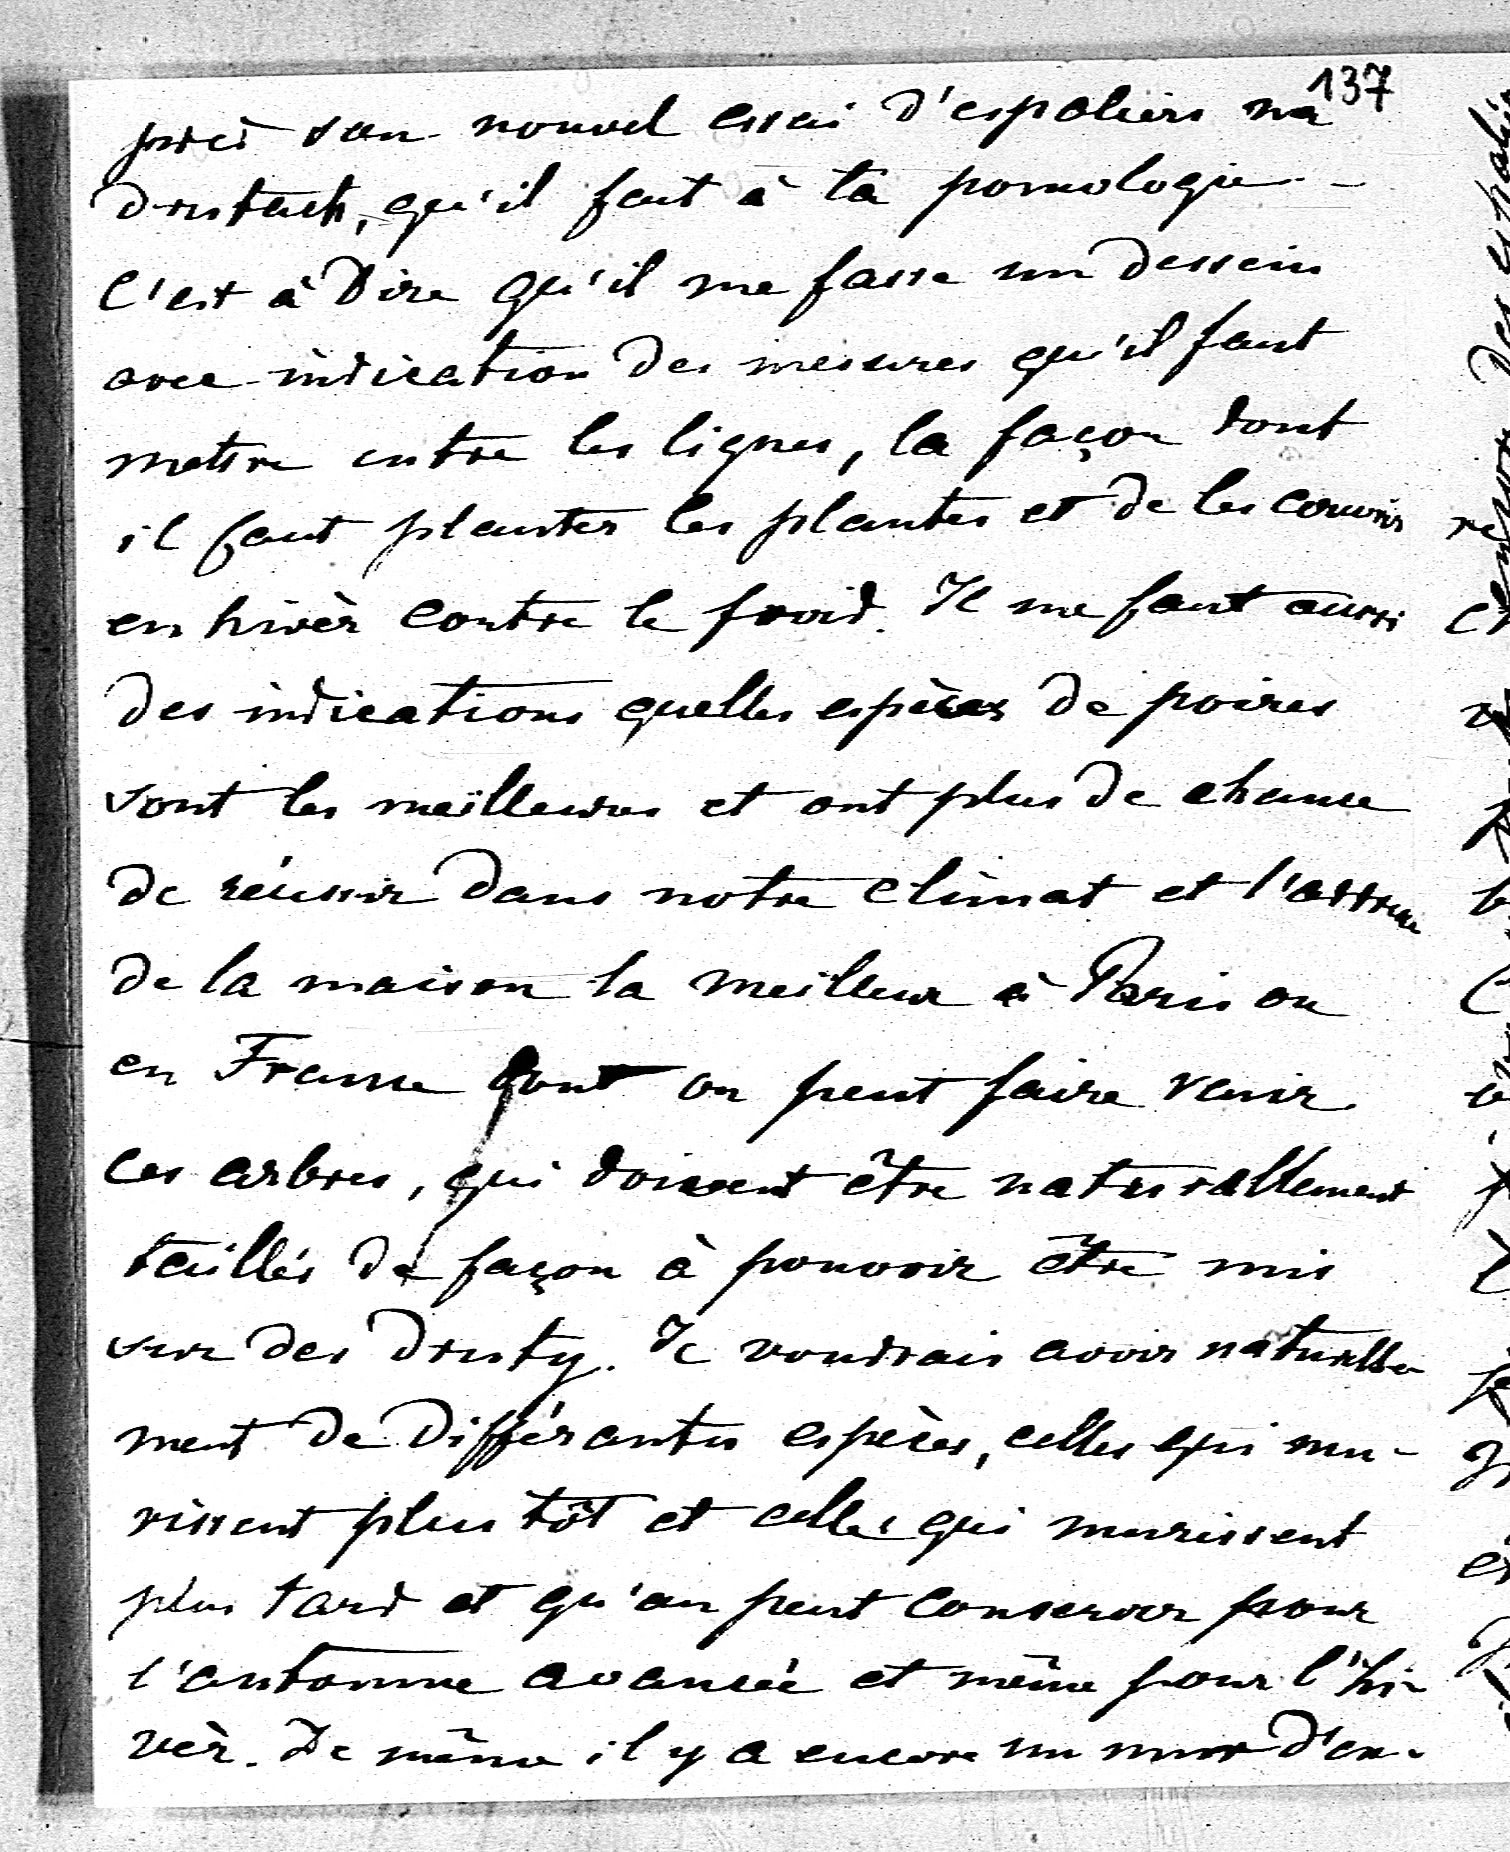 137
près son nouvel essai d'espaliers na
drutach, qu'il fait à ta pomologie -
C'est à dire qu'il me fasse un dessein
avec indication des mesures qu'il faut
mettre entre les lignes, la façon dont
il faut planter les plantes et de les couvrir
en hivèr contre le froid. Il me faut aussi
des indications quelles espèces de poires
sont les meilleures et ont plus de chance
de réussir dans notre climat et l'adresse
de la maison la meilleur à Paris ou
en France dont on peut faire venir
ces arbres, qui doivent être naturallement
taillés de façon à pouvoir être mis
sur des druty. Je voudrais avoir naturelle-
ment de différantes espèces, celles qui mu-
rissent plus tôt et celles qui murissent
plus tard et qu'on peut conserver pour
l'automne avancée et même pour l'hi-
vèr. De même il y a encore un mur d'en-